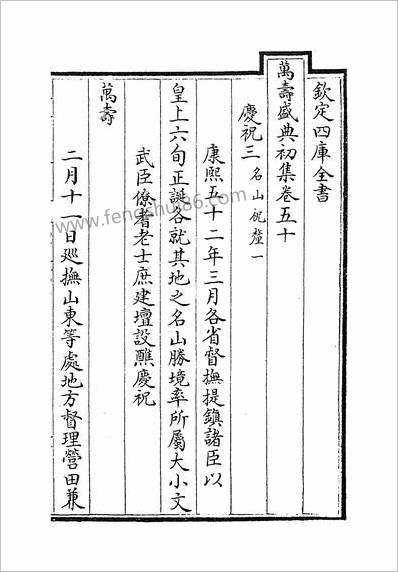 欽定四庫全書
萬壽盛典初集卷五十
慶祝三 名山祝釐一
康熙五十二年三月各省督撫提鎮諸臣以
皇上六旬正誕各就其地之名山勝境率所屬大小文
武臣僚耆老士庶建壇設醮慶祝
萬壽
二月十一日巡撫山東等處地方督理營田兼
www.fengshui86.com